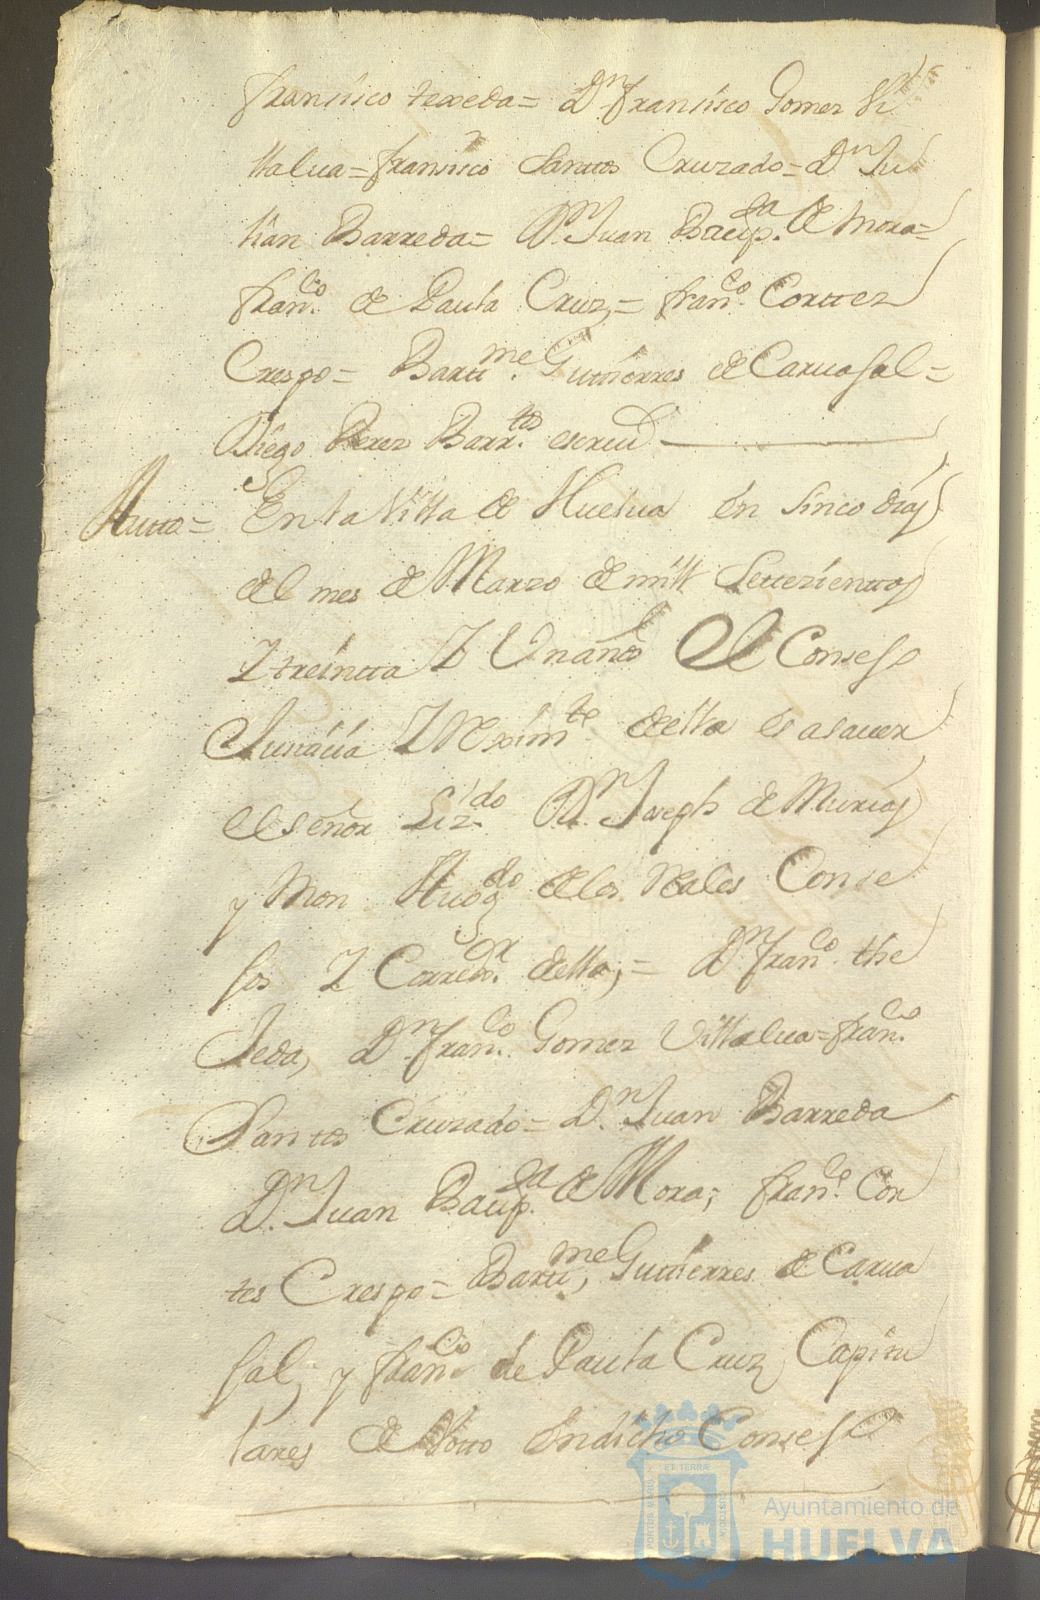 Fransisco texeda = Dn. Fransisco Gomez Vi
llalua = fransisco Santtos Cruzado = Dn Ju
lian Barreda = Dn. Juan Baup.ta de Mora =
fran.co de Paula Cruz = fran.co Corttez
Crespo = Bartt.me Gutierres de Caruasal =
Diego Perez Barr.tos escriu.
Autto = En la Villa de Huelua en sinco dias
del mes de Marzo de mill Settezienttos
Y treintta Y Un años El Conseso
Justicia Y Rexim.te della es a sauer
el señor Liz.do Dn. Joseph de Murias
y Mon Auog.do de los Reales Conse
sos Y Corred.r della; = Dn. fran.co the
Jeda, Dn. fran.co Gomez Villalua = fran.co
Santtos Cruzado = Dn. Juan Barreda
Dn. Juan Baup.ta de Mora; fran.co Cor
tes Crespo = Bartt.me Gutierres de Carua
sal, y fran.co de Paula Cruz, Capitu
lares de Votto En dicho Conseso
PORTUS MARIS ET TERRÆ CUSTODIA
Ayuntamiento de
HUELVA